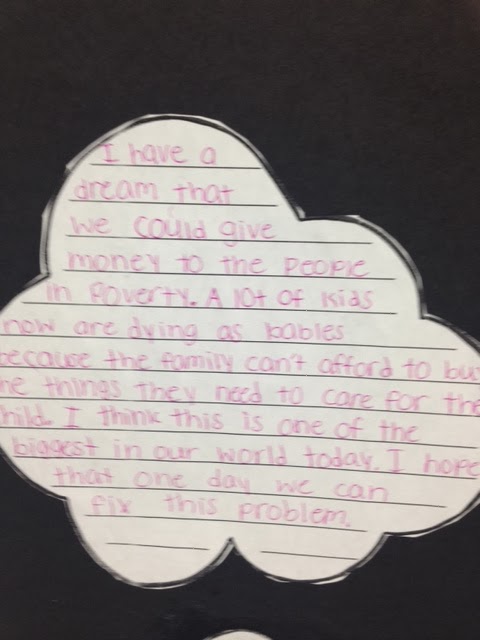 I have a
dream that
we could give
money to the people
in Poverty. A lot of kids
now are dying as babies
because the family can't afford to buy
he things they need to care for the
hild. I think this is one of the
biggest in our world today. I hope
that one day we can
fix this problem.